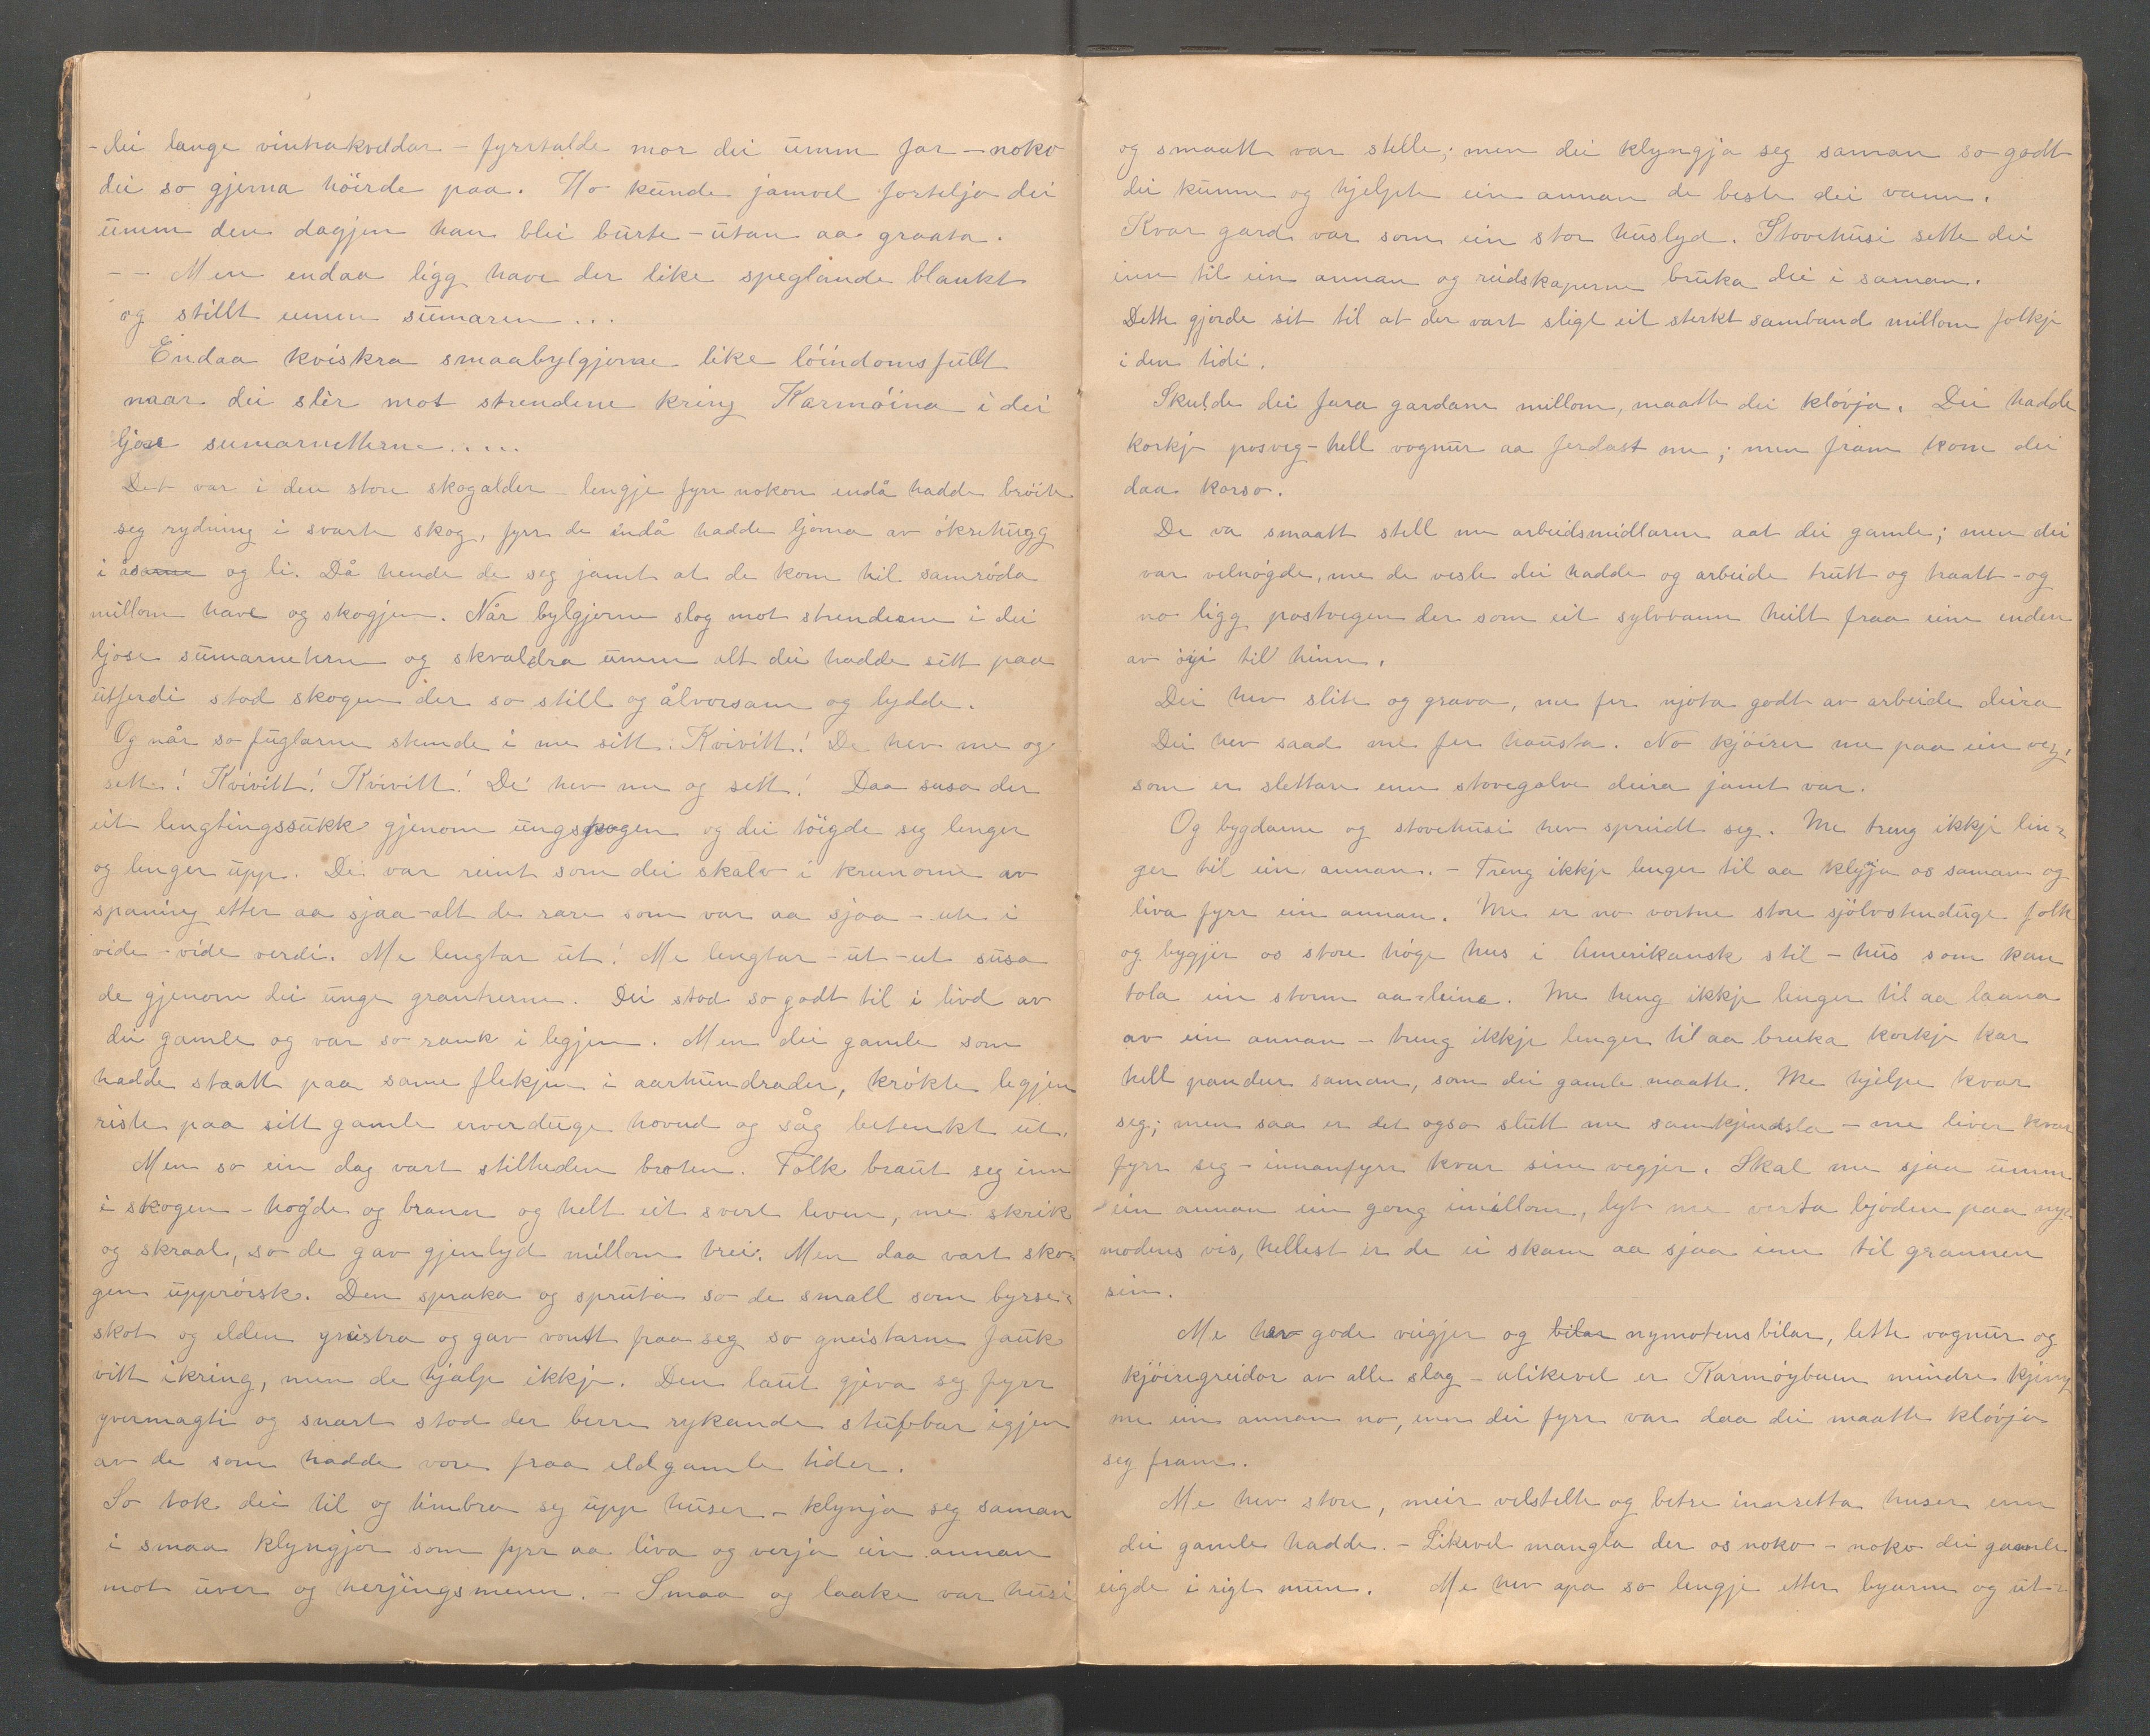 - dei lange vintrakveldar - fyrrtalde mor dei umm far - noko
dei so gjerna höirde paa. Ho kunde jamvel fortelja dei
umm den dagjen han blei burte - utan aa graata.
- - Men endaa ligg have der like speglande blankt
og stillt umm sumaren ...
Endaa kviskra smaabylgjerne like löindomsfullt
naar dei slèr mot strendene kring Karmöina i dei
ljose sumarnetterne ....
Det var i den store skogalder - lengje fyrr nokon endå hadde bröite
seg rydning i svarte skog, fyrr de endå hadde ljoma av öksehugg
i åsarne og li. Då hende de seg jamt at de kom til samröda
millom have og skogjen. Når bylgjerne slog mot strenderne i dei
ljose sumarneterne og skvaldra umm alt dei hadde sitt paa
utferdi stod skogen der so still og ålvorsam og lydde.
Og når so fuglarne stemde i me sitt: Kvivitt! De hev me og
sett! Kvivitt! Kvivitt! De hev me og sett! Daa susa der
eit lengtingssukk gjenom ungskogen og dei töigde seg lenger
og lenger upp. De var reint som dei skalv i krunome av
spaning etter aa sjaa - alt de rare som var aa sjaa - ute i
vide - vide verdi. Me lengtar ut! Me lengtar - ut - ut susa
de gjenom dei unge granterne. Dei stod so godt til i livd av
dei gamle og var so rank i legjen. Men dei gamle som
hadde staatt paa same flekjen i aarhundrader, krökte legjen
riste paa sitt gamle erverduge hovud og såg betenkt ut.
Men so ein dag vart stilheden broten. Folk braut seg inn
i skogen - hogde og brann og helt eit svert leven, me skrik
og skraal, so de gav gjenlyd millom trei. Men daa vart sko-
gen upprörsk. Den spraka og spruta so de small som byrse-
skot og elden gneistra og gav vontt fraa seg so gneistarne fauk
vitt ikring, men de hjalp ikkje. Den laut gjeva seg fyrr
yvermagti og snart stod der berre rykande stubbar igjen
av de som hadde vore fraa eldgamle tider.
So tok dei til og timbra seg upp huser - klynja seg saman
i smaa klyngjor som fyrr aa liva og verja ein annan
mot uver og herjingsmenn. - Smaa og laake var husi
og smaatt var stelle; men dei klyngja seg saman so godt
dei kunne og hjelpte ein annan de beste dei vann.
Kvar gard var som ein stor huslyd. Stovehusi sette dei
inn til ein annan og reidskaperne bruka dei i saman.
Dette gjorde sit til at der vart sligt eit sterkt samband millom folkje
i den tidi.
Skulde dei fara gardane millom, maatte dei klövja. Dei hadde
korkje posveg - hell vognur aa ferdast me; men fram kom dei
daa korso.
De va smaatt stell me arbeidsmidlarne aat dei gamle; men dei
var velnögde, me de vesle dei hadde og arbeide trutt og traatt - og
no ligg postvegen der som eit sylvband heilt fraa eine enden
av öyi til hinn.
Dei hev slite og grava, me fer njota godt av arbeide deira
Dei hev saad me fer hausta. No kjöirer me paa ein veg,
som er slettare enn stovegolve deira jamt var.
Og bygdarne og stovehusi hev spreidt seg. Me treng ikkje len-
ger til ein annan. - Treng ikkje lenger til aa klyja os saman og
liva fyrr ein annan. Me er no vortne store sjölvstenduge folk
og bygjer os store höge hus i Amerikansk stil - hus som kan
tola ein storm aa-leine. Me treng ikkje lenger til aa laana
av ein annan - treng ikkje lenger til aa bruka korkje kar
hell pandur saman, som dei gamle maatte. Me hjelpe kvar
seg; men saa er det ogso slutt me samkjendsla - me liver kvar
fyrr seg - innanfyrr kvar sine vegjer. Skal me sjaa umm
ein annan ein gong imillom, lyt me verta bjöden paa ny-
modens vis, hellest er de ei skam aa sjaa inn til grannen
sin.
Me hev gode veigjer og bilar nymotens bilar, lette vognur og
kjöiregreidor av alle slag - alikevel er Karmöybuen mindre kjeng
me ein annan no, enn dei fyrr var daa dei maatte klövja
seg fram.
Me hev store, meir velstelte og betre innretta huser enn
dei gamle hadde. - Likevel mangla der os noko - noko dei gamle
eigde i rigt mun. Me hev apa so lengje etter byarne og ut-